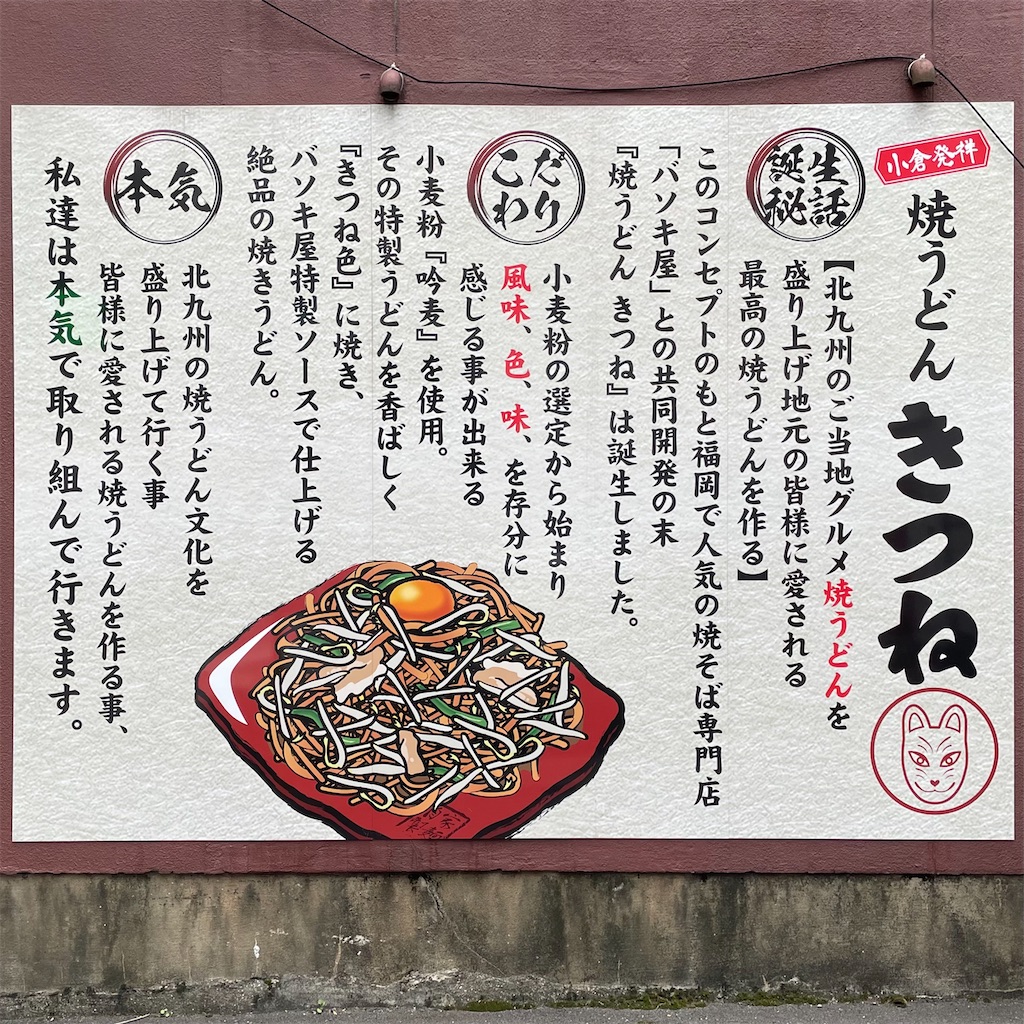 小倉発祥
焼うどん きつね
誕生秘話
【北九州のご当地グルメ焼うどんを
盛り上げ地元の皆様に愛される
最高の焼うどんを作る】
このコンセプトのもと福岡で人気の焼そば専門店
「バソキ屋」との共同開発の末
『焼うどん きつね』は誕生しました。
こだわり
小麦粉の選定から始まり
風味、色、味、を存分に
感じる事が出来る
小麦粉『吟麦』を使用。
その特製うどんを香ばしく
『きつね色』に焼き、
バソキ屋特製ソースで仕上げる
絶品の焼きうどん。
本気
北九州の焼うどん文化を
盛り上げて行く事
皆様に愛される焼うどんを作る事、
私達は本気で取り組んで行きます。